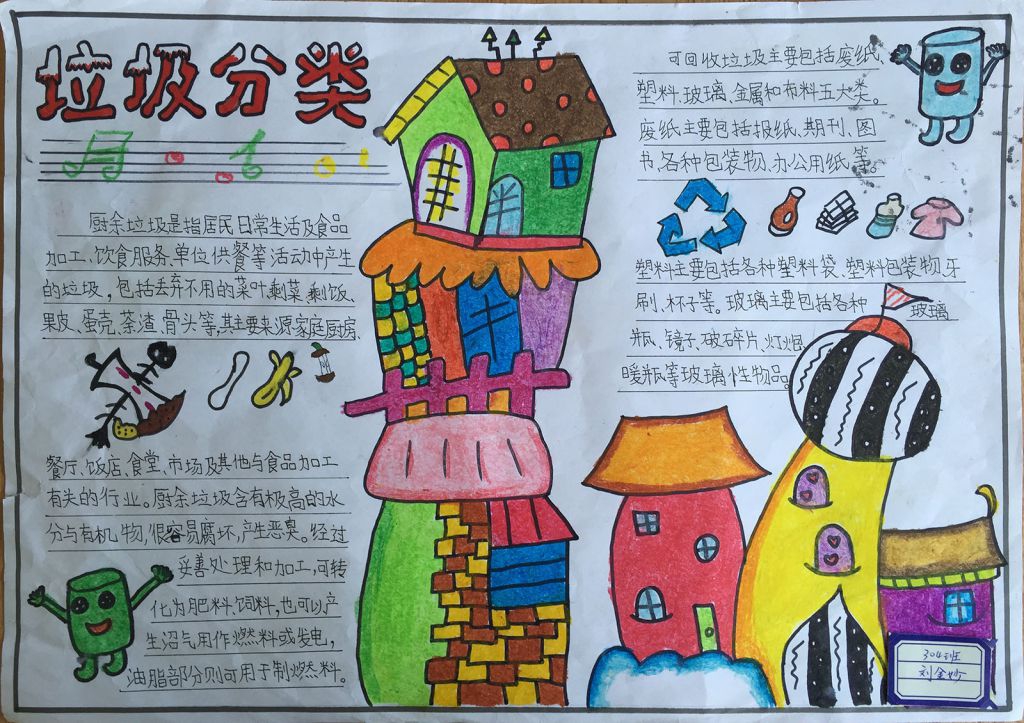 垃圾分类
厨余垃圾是指居民日常生活及食品
加工、饮食服务、单位供餐等活动中产生
的垃圾，包括丢弃不用的菜叶、剩菜、剩饭、
果皮、蛋壳、茶渣、骨头等，其主要来源家庭厨房、
餐厅、饭店、食堂、市场及其他与食品加工
有关的行业。厨余垃圾含有极高的水
分与有机物，很容易腐坏，产生恶臭。经过
妥善处理和加工，可转
化为肥料、饲料，也可以产
生沼气用作燃料或发电，
油脂部分则可用于制燃料。
可回收垃圾主要包括废纸、
塑料、玻璃、金属和布料五大类。
废纸主要包括报纸、期刊、图
书、各种包装物、办公用纸等。
塑料主要包括各种塑料袋、塑料包装物、牙
刷、杯子等。玻璃主要包括各种 玻璃
瓶、镜子、破碎片、灯炮
暖瓶等玻璃性物品。
304班
刘金妙